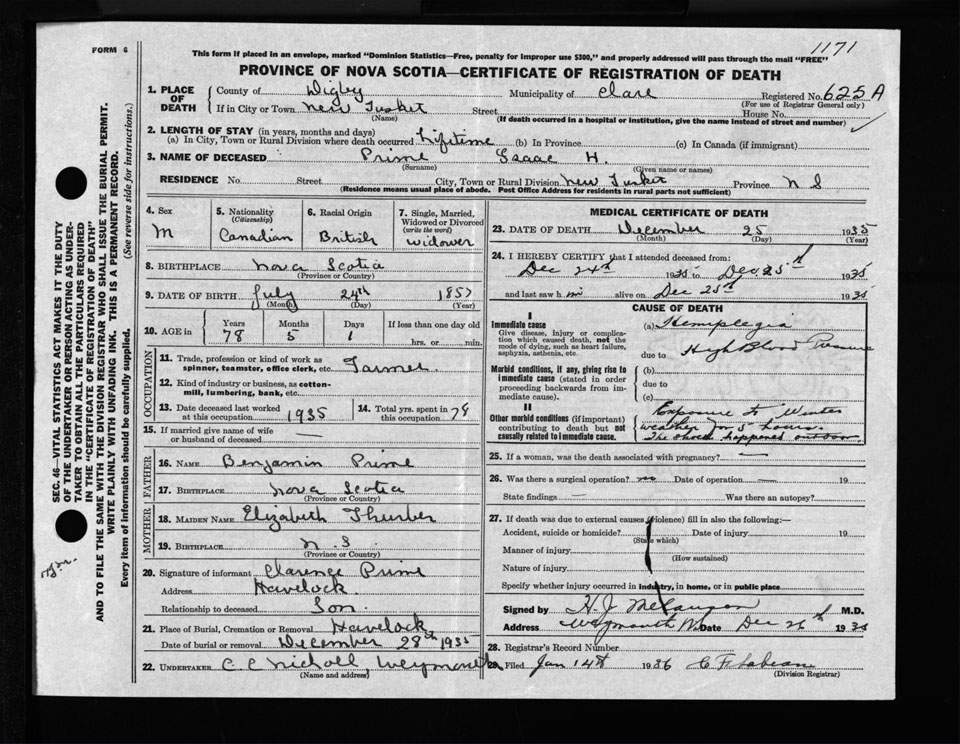 1171
FORM 6
This form if placed in an envelope, marked "Dominion Statistics—Free, penalty for improper use $300," and properly addressed will pass through the mail "FREE"
PROVINCE OF NOVA SCOTIA—CERTIFICATE OF REGISTRATION OF DEATH
1. PLACE OF DEATH County of Digby Municipality of Clare Registered No. 625A
(For use of Registrar General only)
If in City or Town New Tusket Street House No.
(Name) (If death occurred in a hospital or institution, give the name instead of street and number)
2. LENGTH OF STAY (in years, months and days)
(a) In City, Town or Rural Division where death occurred Lifetime (b) In Province (c) In Canada (if immigrant)
3. NAME OF DECEASED Prime Isaac H.
(Surname) (Given name or names)
RESIDENCE No. Street City, Town or Rural Division New Tusket Province N S
(Residence means usual place of abode. Post Office Address for residents in rural parts not sufficient)
4. Sex 5. Nationality (Citizenship) 6. Racial Origin 7. Single, Married, Widowed or Divorced (write the word)
M Canadian British widower
8. BIRTHPLACE Nova Scotia
(Province or Country)
9. DATE OF BIRTH July 24th 1857
(Month) (Day) (Year)
10. AGE in Years Months Days If less than one day old
78 5 1 hrs. or min.
OCCUPATION
11. Trade, profession or kind of work as spinner, teamster, office clerk, etc. Farmer
12. Kind of industry or business, as cotton-mill, lumbering, bank, etc.
13. Date deceased last worked at this occupation 1935 14. Total yrs. spent in this occupation 78
15. If married give name of wife or husband of deceased —
FATHER
16. NAME Benjamin Prime
17. BIRTHPLACE Nova Scotia
(Province or Country)
MOTHER
18. MAIDEN NAME Elizabeth Thurber
19. BIRTHPLACE N. S
(Province or Country)
20. Signature of informant Clarence Prime
Address Havelock
Relationship to deceased Son
21. Place of Burial, Cremation or Removal Havelock
Date of burial or removal December 28 1935
22. UNDERTAKER C C Nicholl, Weymouth
(Name and address)
MEDICAL CERTIFICATE OF DEATH
23. DATE OF DEATH December 25 1935
(Month) (Day) (Year)
24. I HEREBY CERTIFY that I attended deceased from:
Dec 24th 1935 to Dec 25th 1935
and last saw h im alive on Dec 25th 1935
CAUSE OF DEATH
I
Immediate cause
Give disease, injury or complication which caused death, not the mode of dying, such as heart failure, asphyxia, asthenia, etc.
(a) Hemiplegia
due to High Blood Pressure
Morbid conditions, if any, giving rise to immediate cause (stated in order proceeding backwards from immediate cause).
(b)
due to
(c)
II
Other morbid conditions (if important) contributing to death but not causally related to immediate cause.
Exposure to Winter
weather for 5 hours.
The shock happened outdoor
25. If a woman, was the death associated with pregnancy? —
26. Was there a surgical operation? no Date of operation — 19
State findings — Was there an autopsy?
27. If death was due to external causes (violence) fill in also the following:—
Accident, suicide or homicide? Date of injury 19
(State which)
Manner of injury
(How sustained)
Nature of injury
Specify whether injury occurred in industry, in home, or in public place
Signed by H. J. M.D.
Address Weymouth N.S Date Dec 26th 1935
28. Registrar's Record Number
29. Filed Jan 14th 1936 C F
(Division Registrar)
SEC. 46—VITAL STATISTICS ACT MAKES IT THE DUTY
OF THE UNDERTAKER OR PERSON ACTING AS UNDER-
TAKER TO OBTAIN ALL THE PARTICULARS REQUIRED
IN THE "CERTIFICATE OF REGISTRATION OF DEATH"
AND TO FILE THE SAME WITH THE DIVISION REGISTRAR WHO SHALL ISSUE THE BURIAL PERMIT.
WRITE PLAINLY WITH UNFADING INK. THIS IS A PERMANENT RECORD.
Every item of information should be carefully supplied. (See reverse side for instructions.)